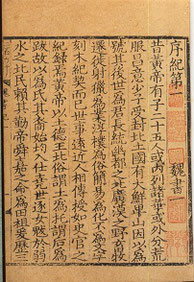 序紀第一 魏書一
昔黃帝有子二十五人或內列諸華或外分荒
服昌意少子受封北土國有大鮮卑山因以為
號其後世為君長統幽都之北廣漠之野畜牧
遷徙射獵為業淳樸為俗簡易為化不為文字
刻木紀契而已世事遠近人相傳授如史官之
紀錄焉黃帝以土德王北俗謂土為托謂后為
跋故以為氏其裔始均入仕堯世逐女魃於弱
水之北民賴其勤帝舜嘉之命為田祖爰歷三